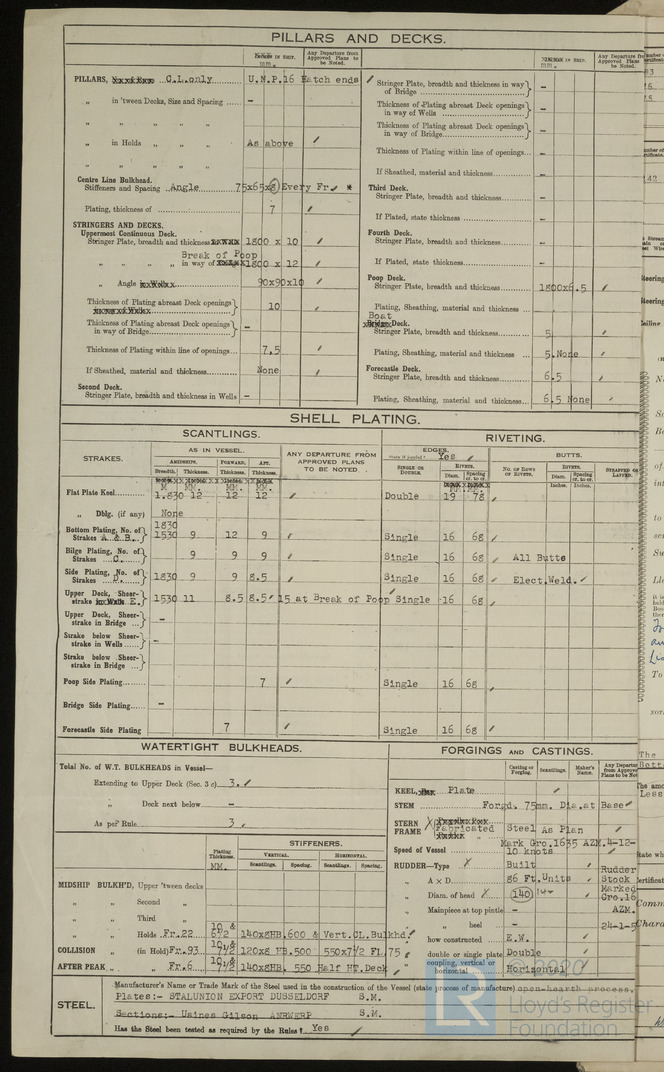 PILLARS AND DECKS.
Any Departure from Approved Plans to be Noted.
PILLARS, C.L.only U.N.P.16 Eatch ends
„ in 'tween Decks, Size and Spacing –
„ „ „ „
„ in Holds „ „ As above
„ „ „ „
Centre Line Bulkhead.
Stiffeners and Spacing Angle 75x65x8 Every Fr.
Plating, thickness of 7
STRINGERS AND DECKS.
Uppermost Continuous Deck.
Stringer Plate, breadth and thickness 1800 x 10
Break of Poop
„ „ „ „ in way of 1800 x 12
„ Angle 90x90x10
Thickness of Plating abreast Deck openings 10
Thickness of Plating abreast Deck openings in way of Bridge –
Thickness of Plating within line of openings 7,5
If Sheathed, material and thickness None
Second Deck.
Stringer Plate, breadth and thickness in Wells –
Any Departure from Approved Plans to be Noted.
Stringer Plate, breadth and thickness in way of Bridge –
Thickness of Plating abreast Deck openings in way of Wells –
Thickness of Plating abreast Deck openings in way of Bridge –
Thickness of Plating within line of openings –
If Sheathed, material and thickness –
Third Deck.
Stringer Plate, breadth and thickness –
If Plated, state thickness –
Fourth Deck.
Stringer Plate, breadth and thickness –
If Plated, state thickness –
Poop Deck.
Stringer Plate, breadth and thickness 1800x6.5
Plating, Sheathing, material and thickness –
Boat Deck.
Stringer Plate, breadth and thickness 5
Plating, Sheathing, material and thickness 5.None
Forecastle Deck.
Stringer Plate, breadth and thickness 6.5
Plating, Sheathing, material and thickness 6.5 None
SHELL PLATING.
SCANTLINGS. RIVETING.
STRAKES. AS IN VESSEL. ANY DEPARTURE FROM APPROVED PLANS TO BE NOTED. EDGES. Yes BUTTS.
AMIDSHIPS. FORWARD. AFT. SINGLE OR DOUBLE RIVETS. NO. OF ROWS OF RIVETS. RIVETS. STRAPPED OR LAPPED.
Breadth. Thickness. Thickness. Thickness. Diam. Spacing cr. to cr. Diam. Spacing cr. to cr.
Inches. Inches.
Flat Plate Keel 1.830 12 12 12 Double 19 78
„ Dblg. (if any) None
Bottom Plating, No. of Strakes A.& B. 1830 1530 9 12 9 Single 16 68
Bilge Plating, No. of Strakes C. 9 9 9 Single 16 68 All Butts
Side Plating, No. of Strakes D. 1830 9 9 8.5 Single 16 68 Elect.Weld.
Upper Deck, Sheer-strake E. 1530 11 8.5 8.5 15 at Break of Poop Single 16 68
Upper Deck, Sheer-strake in Bridge –
Strake below Sheer-strake in Wells –
Strake below Sheer-strake in Bridge –
Poop Side Plating 7 Single 16 68
Bridge Side Plating –
Forecastle Side Plating 7 Single 16 68
WATERTIGHT BULKHEADS.
Total No. of W.T. BULKHEADS in Vessel—
Extending to Upper Deck (Sec. 3 c) 3.
„ Deck next below –
As per Rule 3
STIFFENERS.
Plating Thickness. VERTICAL. HORIZONTAL.
MM. Scantlings. Spacing. Scantlings. Spacing.
MIDSHIP BULKH'D, Upper 'tween decks
„ „ Second „
„ „ Third „
„ „ Holds Fr.22 10 & 6½ 140x8HB.600 & Vert.CL.Bulkhd.
COLLISION „ (in Hold) Fr.93 10 & 7½ 120x8 HB.500 550x7½ FL.75
AFTER PEAK „ „ Fr.6 10 & 7½ 140x8HB. 550 Half HT.Deck
FORGINGS AND CASTINGS.
Casting or Forging. Scantlings. Maker's Name. Any Departure from Approved Plans to be Noted
KEEL, Plate
STEM Forgd. 75mm. Dia.at Base
STERN FRAME Fabricated Steel As Plan
Mark Gro.1635 AZM.4-12-
Speed of Vessel 10 knots
RUDDER—Type Built Rudder
„ A x D 86 Ft.Units Stock
„ Diam. of head 140 Marked Gro.16
Mainpiece at top pintle – AZM.
„ heel – 24-1-5
how constructed E.W.
double or single plate Double
coupling, vertical or horizontal Horizontal
STEEL.
Manufacturer's Name or Trade Mark of the Steel used in the construction of the Vessel (state process of manufacture) open-hearth process.
Plates:- STALUNION EXPORT DUSSELDORF S.M.
Sections:- Usines Gilson ANRWERP S.M.
Has the Steel been tested as required by the Rules? Yes
© 2020
Lloyd's Register
Foundation
LR